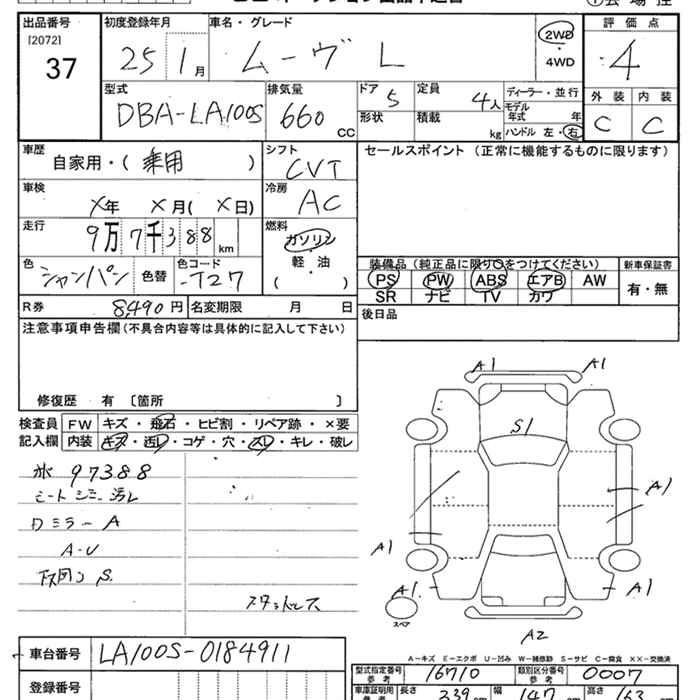 出品番号 初度登録年月 車名・グレード 2WD・4WD 評価点
[2072]
37 25 1月 ムーヴ L 4
型式 排気量 ドア 定員 ディーラー・並行 外装 内装
DBA-LA100S 660CC 5 4人 モデル年式 年 C C
形状 積載 kg ハンドル 左・右
車歴 自家用・(乗用) シフト CVT セールスポイント(正常に機能するものに限ります)
車検 ×年 ×月(×日) 冷房 AC
走行 9万7千388km 燃料 ガソリン
軽・油
( )
色 シャンパン 色替 色コード T27
装備品(純正品に限り○をつけてください) 新車保証書
PS PW ABS エアB AW 有・無
SR ナビ TV カワ
R券 8,490円 名変期限 月 日 後日品
注意事項申告欄(不具合内容等は具体的に記入して下さい)
修復歴 有 〔箇所 〕
検査員記入欄 FW キズ・飛石・ヒビ割・リペア跡・×要
内装 キズ・汚レ・コゲ・穴・スレ・キレ・破レ
97388
シートシミー汚レ
ミラー A
A-U
下回り S.
スタッドレス
A1 A1
S1
A1
A1
A1 A1
スペア
A2
A-キズ E-エクボ U-凹み W-補修跡 S-サビ C-腐食 XX-交換済
車台番号 LA100S-0184911
型式指定番号 参考 16710 類別区分番号 参考 0007
登録番号
車庫証明用 参考 長さ 339 幅 147 高さ 163